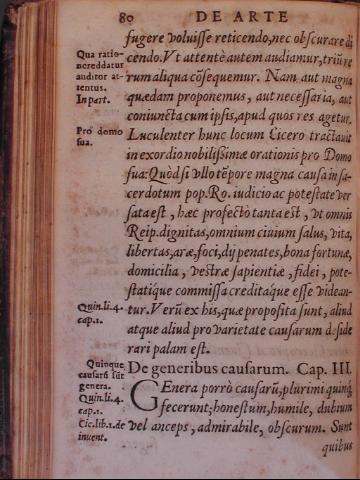 80 DE ARTE
fugere voluisse reticendo, nec obscurare di
cendo. Ut attentè autem audiamur, triũ re
rum aliqua cõsequemur. Nam aut magna
quædam proponemus, aut necessaria, aut
coniuncta cum ipsis, apud quos res agetur.
Luculenter hunc locum Cicero tractauit
in exordio nobilissimæ orationis pro Domo
sua: Quòd si vllo tẽpore magna causa in sa-
cerdotum pop. Ro. iudicio ac potestate ver
sata est, hæc profectò tanta est, vt omnis
Reip. dignitas, omnium ciuium salus, vita,
libertas, aræ, foci, dij penates, bona fortunæ,
domicilia, vestræ sapientiæ, fidei, pote-
statique commissa creditáque esse videan-
tur. Verũ ex his, quæ proposita sunt, aliud
atque aliud pro varietate causarum deside
rari palam est.
De generibus causarum. Cap. III.
GEnera porrò causarũ, plurimi quinq;
fecerunt; honestum, humile, dubium
vel anceps, admirabile, obscurum. Sunt
quibus
Qua ratio-
ne reddatur
auditor at-
tentus.
In part.
Pro domo
sua.
Quin. li. 4.
cap. 1.
Quinque
causarũ sũt
genera.
Quin. li. 4.
cap. 1.
Cic. lib. 1. de
inuent.